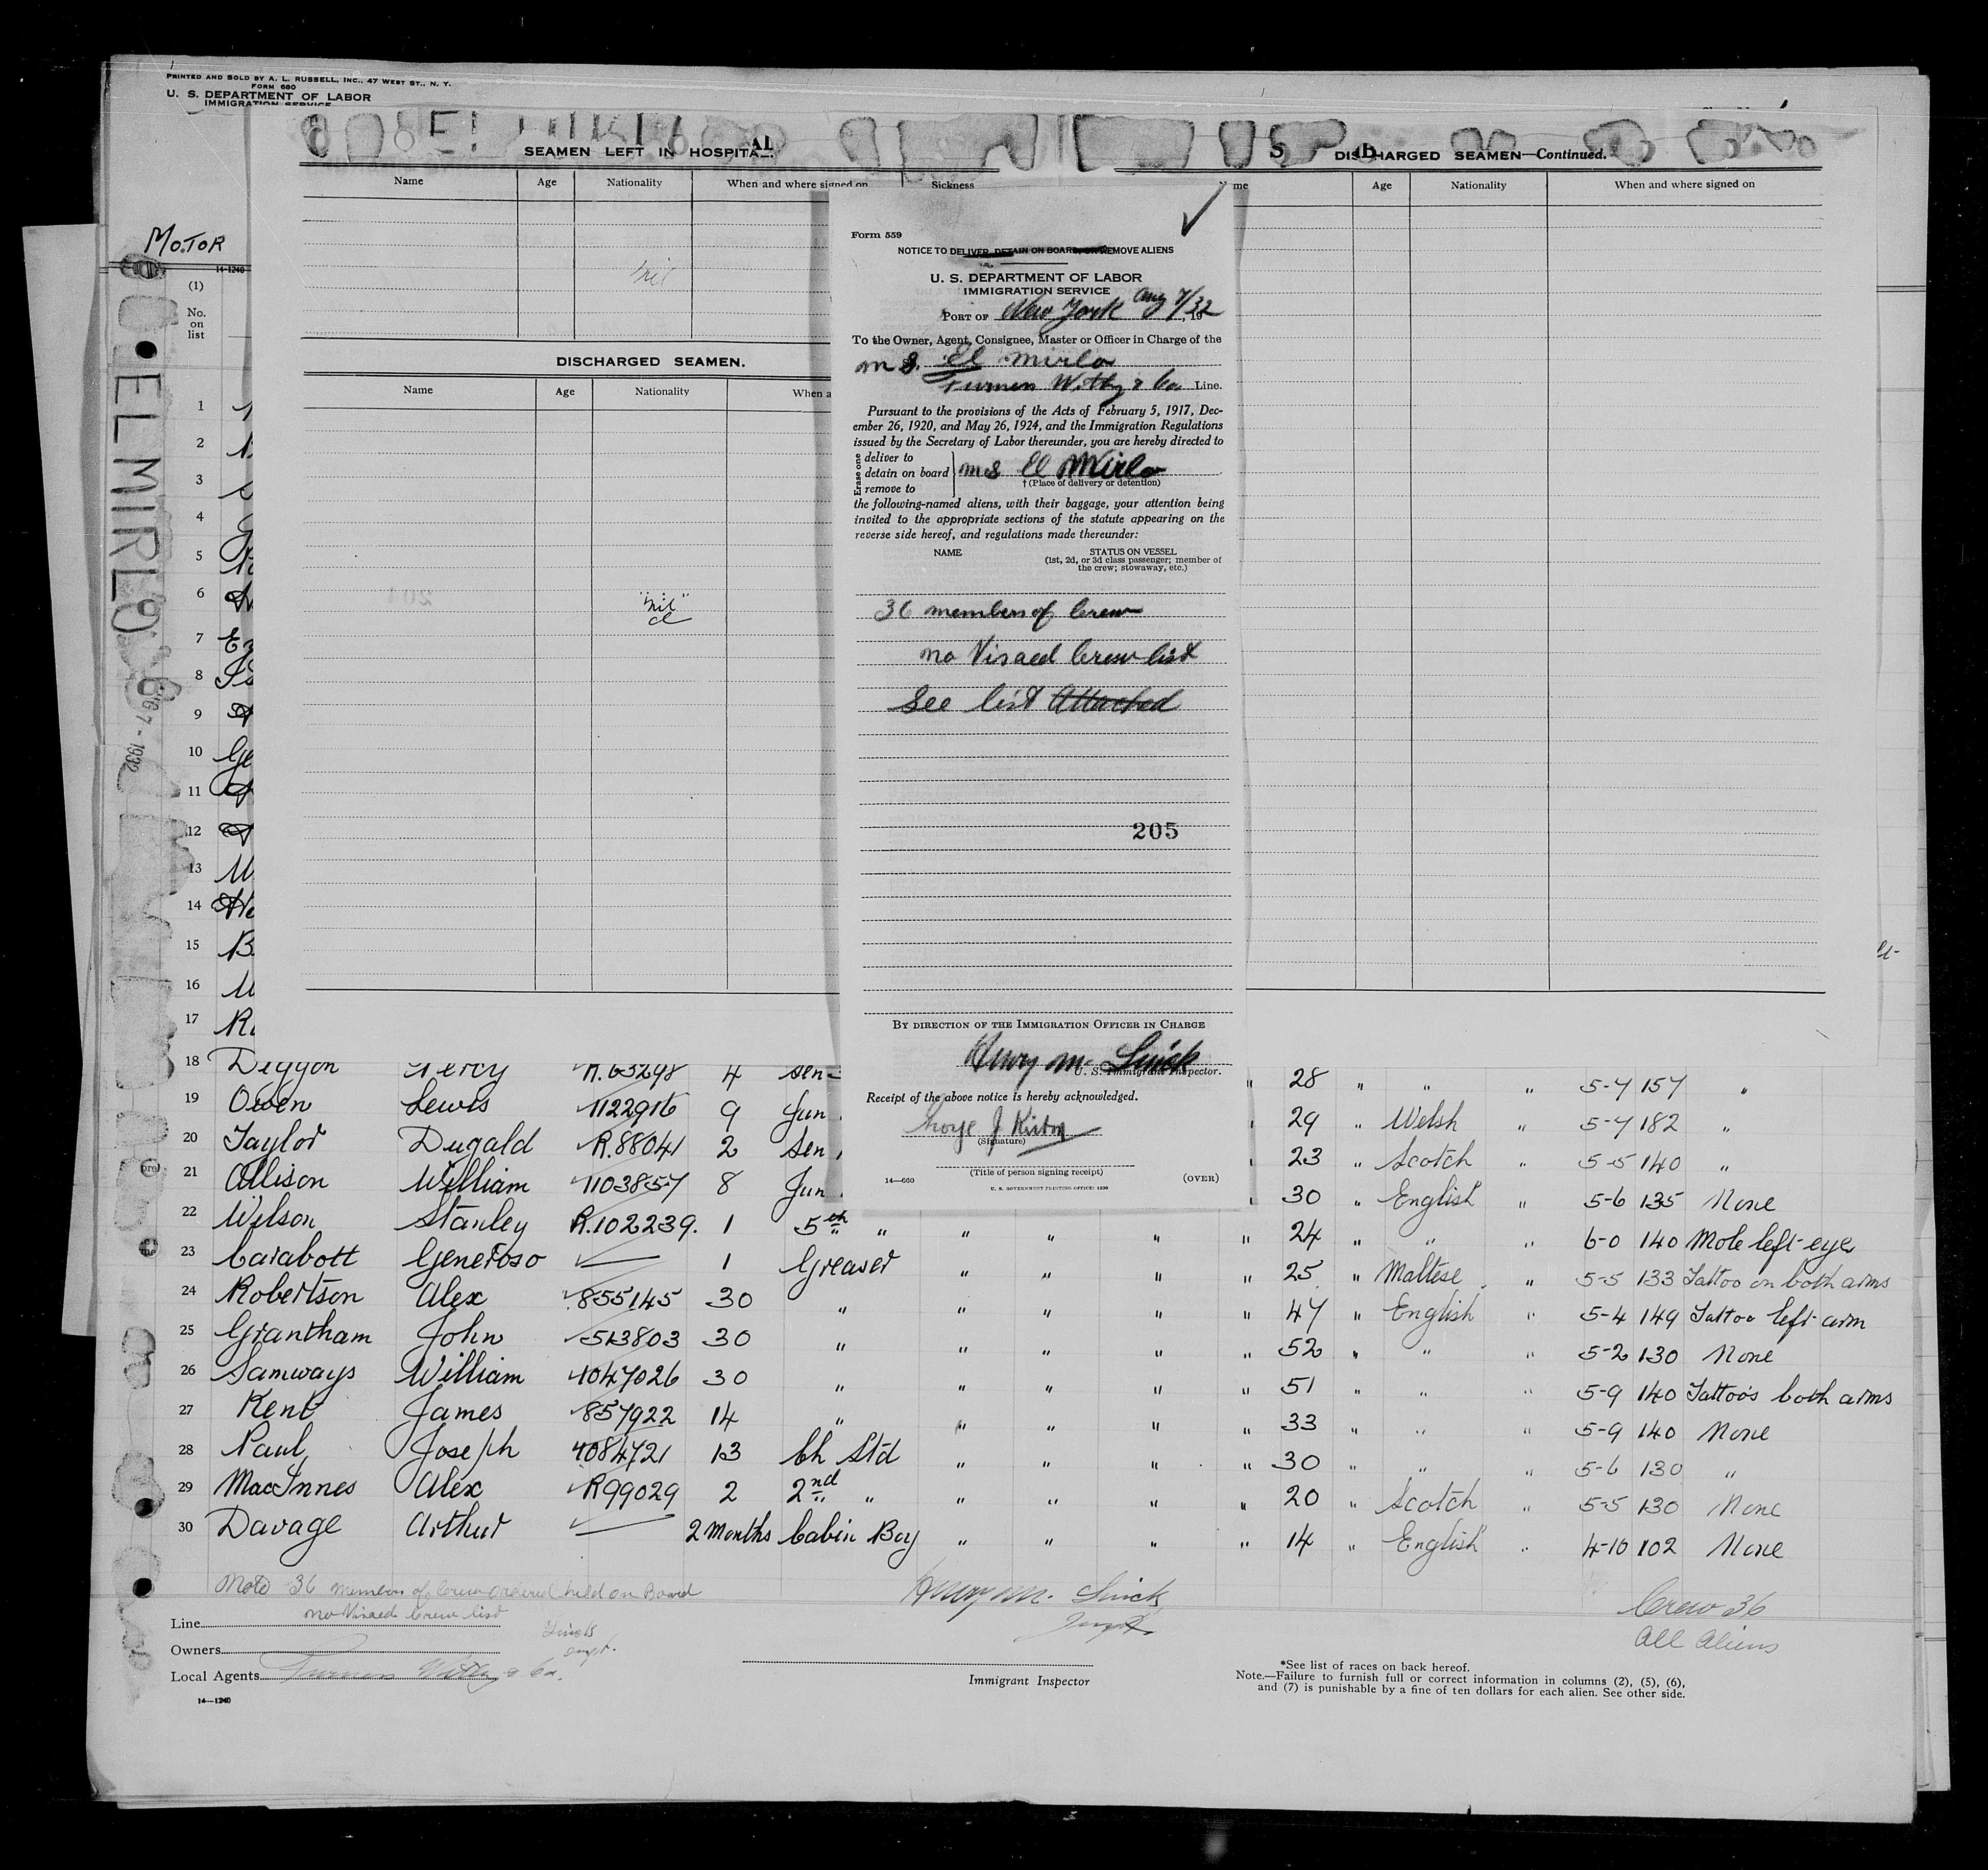 PRINTED AND SOLD BY A. L. RUSSELL, INC., 47 WEST ST., N. Y.
FORM 680
U. S. DEPARTMENT OF LABOR
IMMIGRATION SERVICE
MOTOR
14-1240
(1)
No. on list
EL MIRLO
7 - 1932
SEAMEN LEFT IN HOSPITAL.
Name Age Nationality When and where signed on Sickness
nil
DISCHARGED SEAMEN.
Name Age Nationality When a
"nil"
DISCHARGED SEAMEN—Continued.
me Age Nationality When and where signed on
Form 559
NOTICE TO DELIVER, DETAIN ON BOARD, OR REMOVE ALIENS
U. S. DEPARTMENT OF LABOR
IMMIGRATION SERVICE
PORT OF New York Aug 7/32, 19
To the Owner, Agent, Consignee, Master or Officer in Charge of the
m s. El Mirlo
Furness Withy & Co. Line.
Pursuant to the provisions of the Acts of February 5, 1917, Dec-
ember 26, 1920, and May 26, 1924, and the Immigration Regulations
issued by the Secretary of Labor thereunder, you are hereby directed to
Erase one
deliver to
detain on board ms El Mirlo
remove to
†(Place of delivery or detention)
the following-named aliens, with their baggage, your attention being
invited to the appropriate sections of the statute appearing on the
reverse side hereof, and regulations made thereunder:
NAME STATUS ON VESSEL
(1st, 2d, or 3d class passenger; member of
the crew; stowaway, etc.)
36 members of Crew
no Visaed Crew list
See list Attached
205
BY DIRECTION OF THE IMMIGRATION OFFICER IN CHARGE
Henry M. Linick
U. S. Immigrant Inspector.
Receipt of the above notice is hereby acknowledged.
George J Kirby
(Signature)
(Title of person signing receipt)
14—660 (OVER)
U. S. GOVERNMENT PRINTING OFFICE: 1930
1
2
3
4
5
6
7
8
9
10 Ge
11
12
13 M
14
15 B
16 M
17 R
18 Deggon Percy R.63298 4 Sen " 28 " " " 5-7 157 "
19 Owen Lewis 1122916 9 Jun 29 " Welsh " 5-7 182 "
20 Taylor Dugald R.88041 2 Sen 23 " Scotch " 5-5 140 "
21 Allison William 1103857 8 Jun 30 " English " 5-6 135 None
22 Wilson Stanley R.102239. 1 5th " " " " " 24 " " " 6-0 140 Mole left eye
23 Carabott Generoso 1 Greaser " " " " 25 " Maltese " 5-5 133 Tattoo on both arms
24 Robertson Alex 855145 30 " " " " " 47 " English " 5-4 149 Tattoo left arm
25 Grantham John 513803 30 " " " " " 52 " " " 5-2 130 None
26 Samways William 1047026 30 " " " " " 51 " " " 5-9 140 Tattoos both arms
27 Kent James 857922 14 " " " " " 33 " " " 5-9 140 None
28 Paul Joseph 1084721 13 Ch Std " " " " 30 " " " 5-6 130 "
29 MacInnes Alex R99029 2 2nd " " " " " 20 " Scotch " 5-5 130 None
30 Davage Arthur 2 Months Cabin Boy " " " " 14 " English " 4-10 102 None
Note 36 members of Crew ordered held on Board
no Visaed Crew list
Linick
Inspt.
Henry M. Linick
Inspt.
Crew 36
All Aliens
Line
Owners
Local Agents Furness Withy & Co.
14—1240
Immigrant Inspector
*See list of races on back hereof.
Note.—Failure to furnish full or correct information in columns (2), (5), (6),
and (7) is punishable by a fine of ten dollars for each alien. See other side.